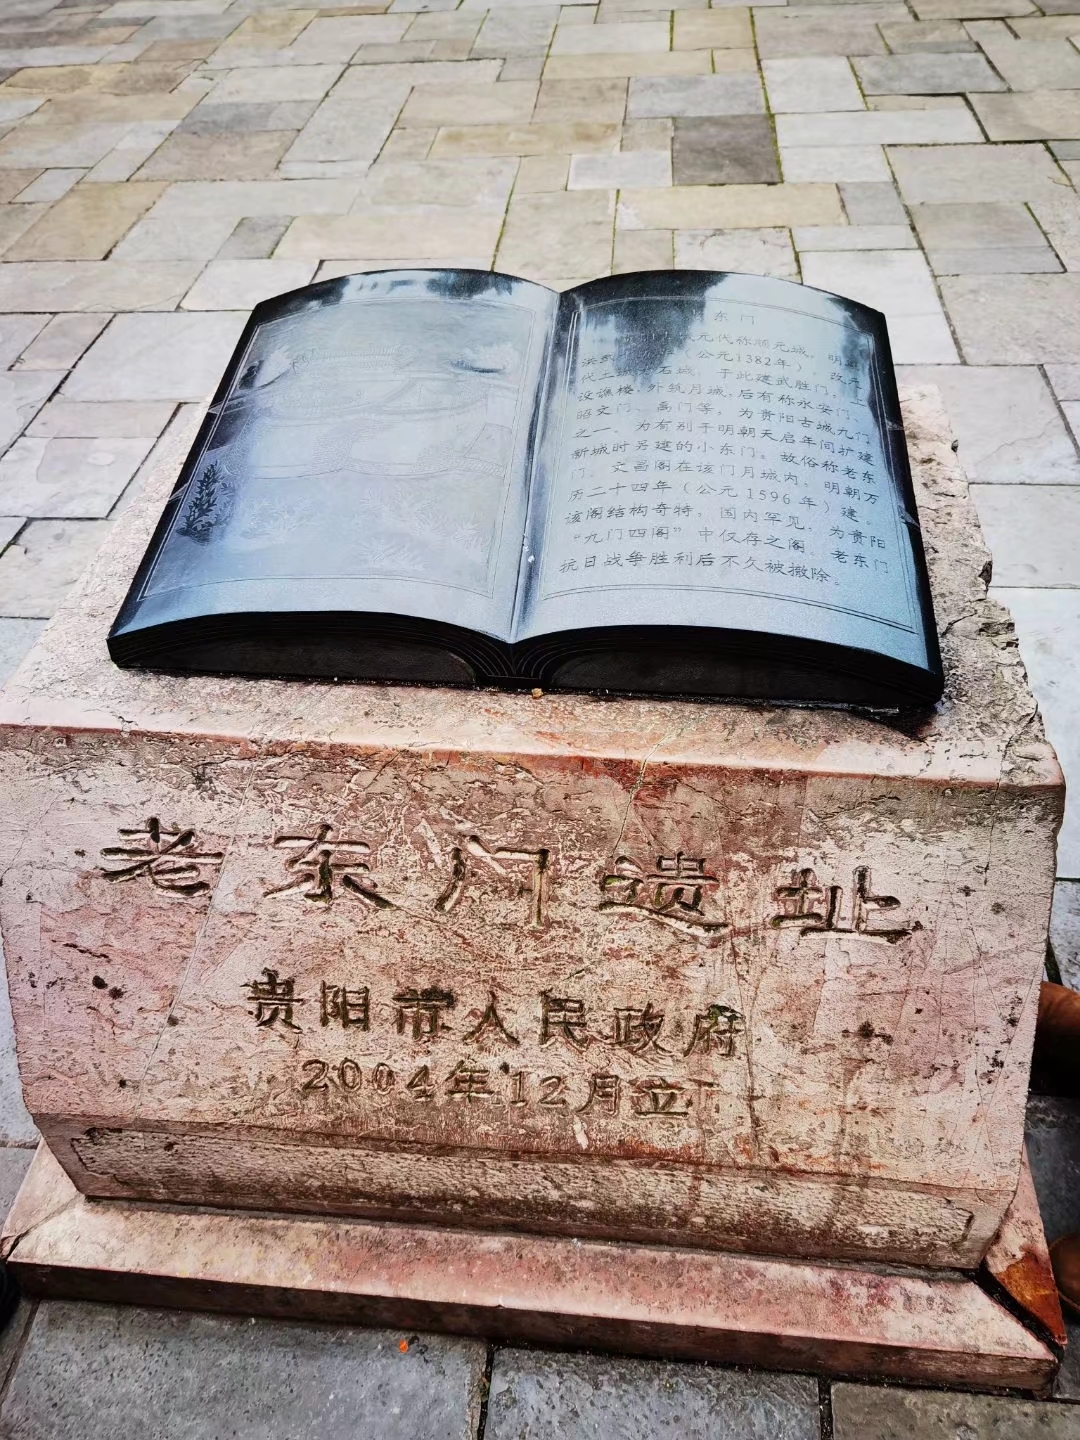 东门
元代称顺元城，明
洪武（公元1382年），改元
代土城为石城，于此建武胜门，上
设谯楼，外筑月城，后有称永安门、
昭文门、禹门等，为贵阳古城九门
之一。为有别于明朝天启年间扩建
新城时另建的小东门。故俗称老东
门。文昌阁在该门月城内，明朝万
历二十四年（公元1596年）建。
该阁结构奇特，国内罕见，为贵阳
“九门四阁”中仅存之阁。老东门
抗日战争胜利后不久被撤除。
老东门遗址
贵阳市人民政府
2004年12月立